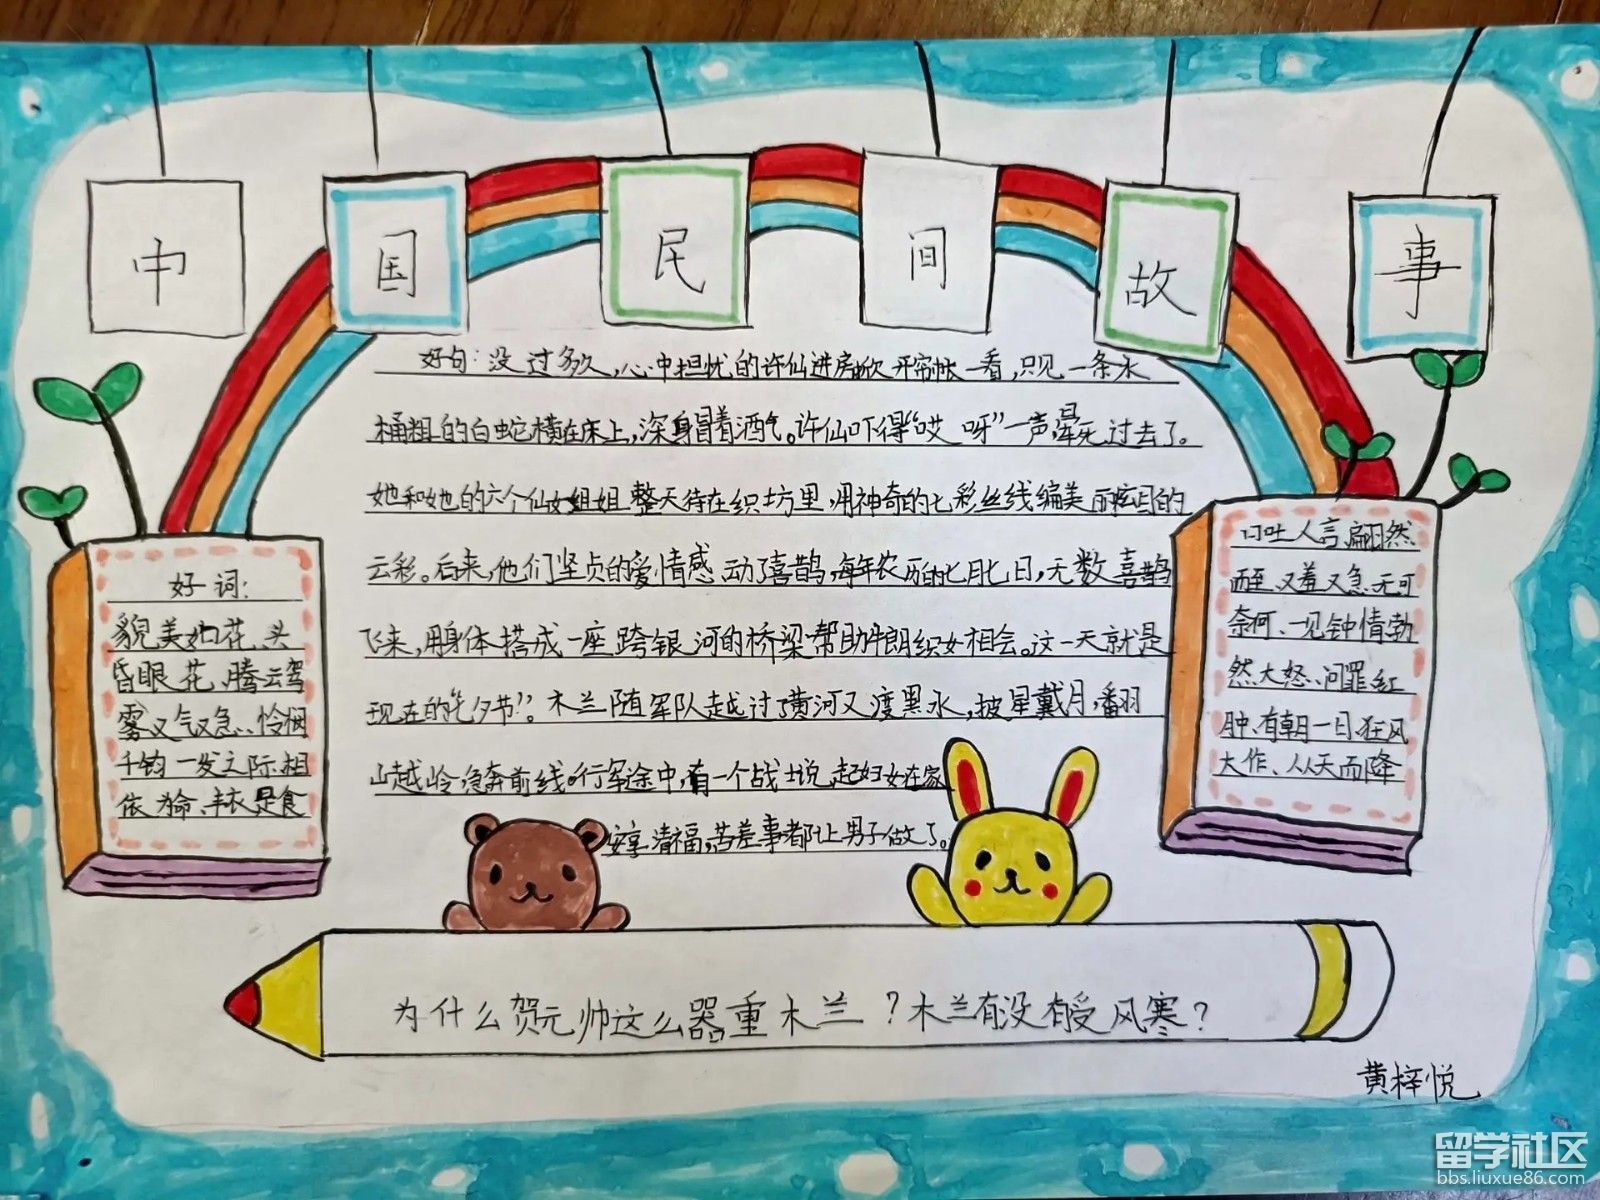 中国民间故事
好句：没过多久，心中担忧的许仙进房掀开帘帐一看，只见一条水
桶粗的白蛇横在床上，浑身冒着酒气。许仙吓得“哎呀”一声，晕死过去了。
她和她的六个仙女姐姐整天待在织坊里，用神奇的七彩丝线编美丽炫目的
云彩。后来，他们坚贞的爱情感动了喜鹊，每年农历的七月七日，无数喜鹊
飞来，用身体搭成一座跨银河的桥梁帮助牛郎织女相会。这一天就是
现在的“七夕节”。木兰随军队越过了黄河又渡黑水，披星戴月，翻
山越岭，急奔前线。行军途中，有一个战士说，起妇女在家
安享清福，苦差事都让男子做了。
好词：
貌美如花、头
昏眼花、腾云驾
雾、又气又急、怜悯
千钧一发之际、相
依为命、丰衣足食
口吐人言、翩然
而至、又羞又急、无可
奈何、一见钟情、勃
然大怒、问罪、红
肿、有朝一日、狂风
大作、从天而降
为什么贺元帅这么器重木兰？木兰有没有受风寒？
黄梓悦
留学社区
bbs.liuxue86.com